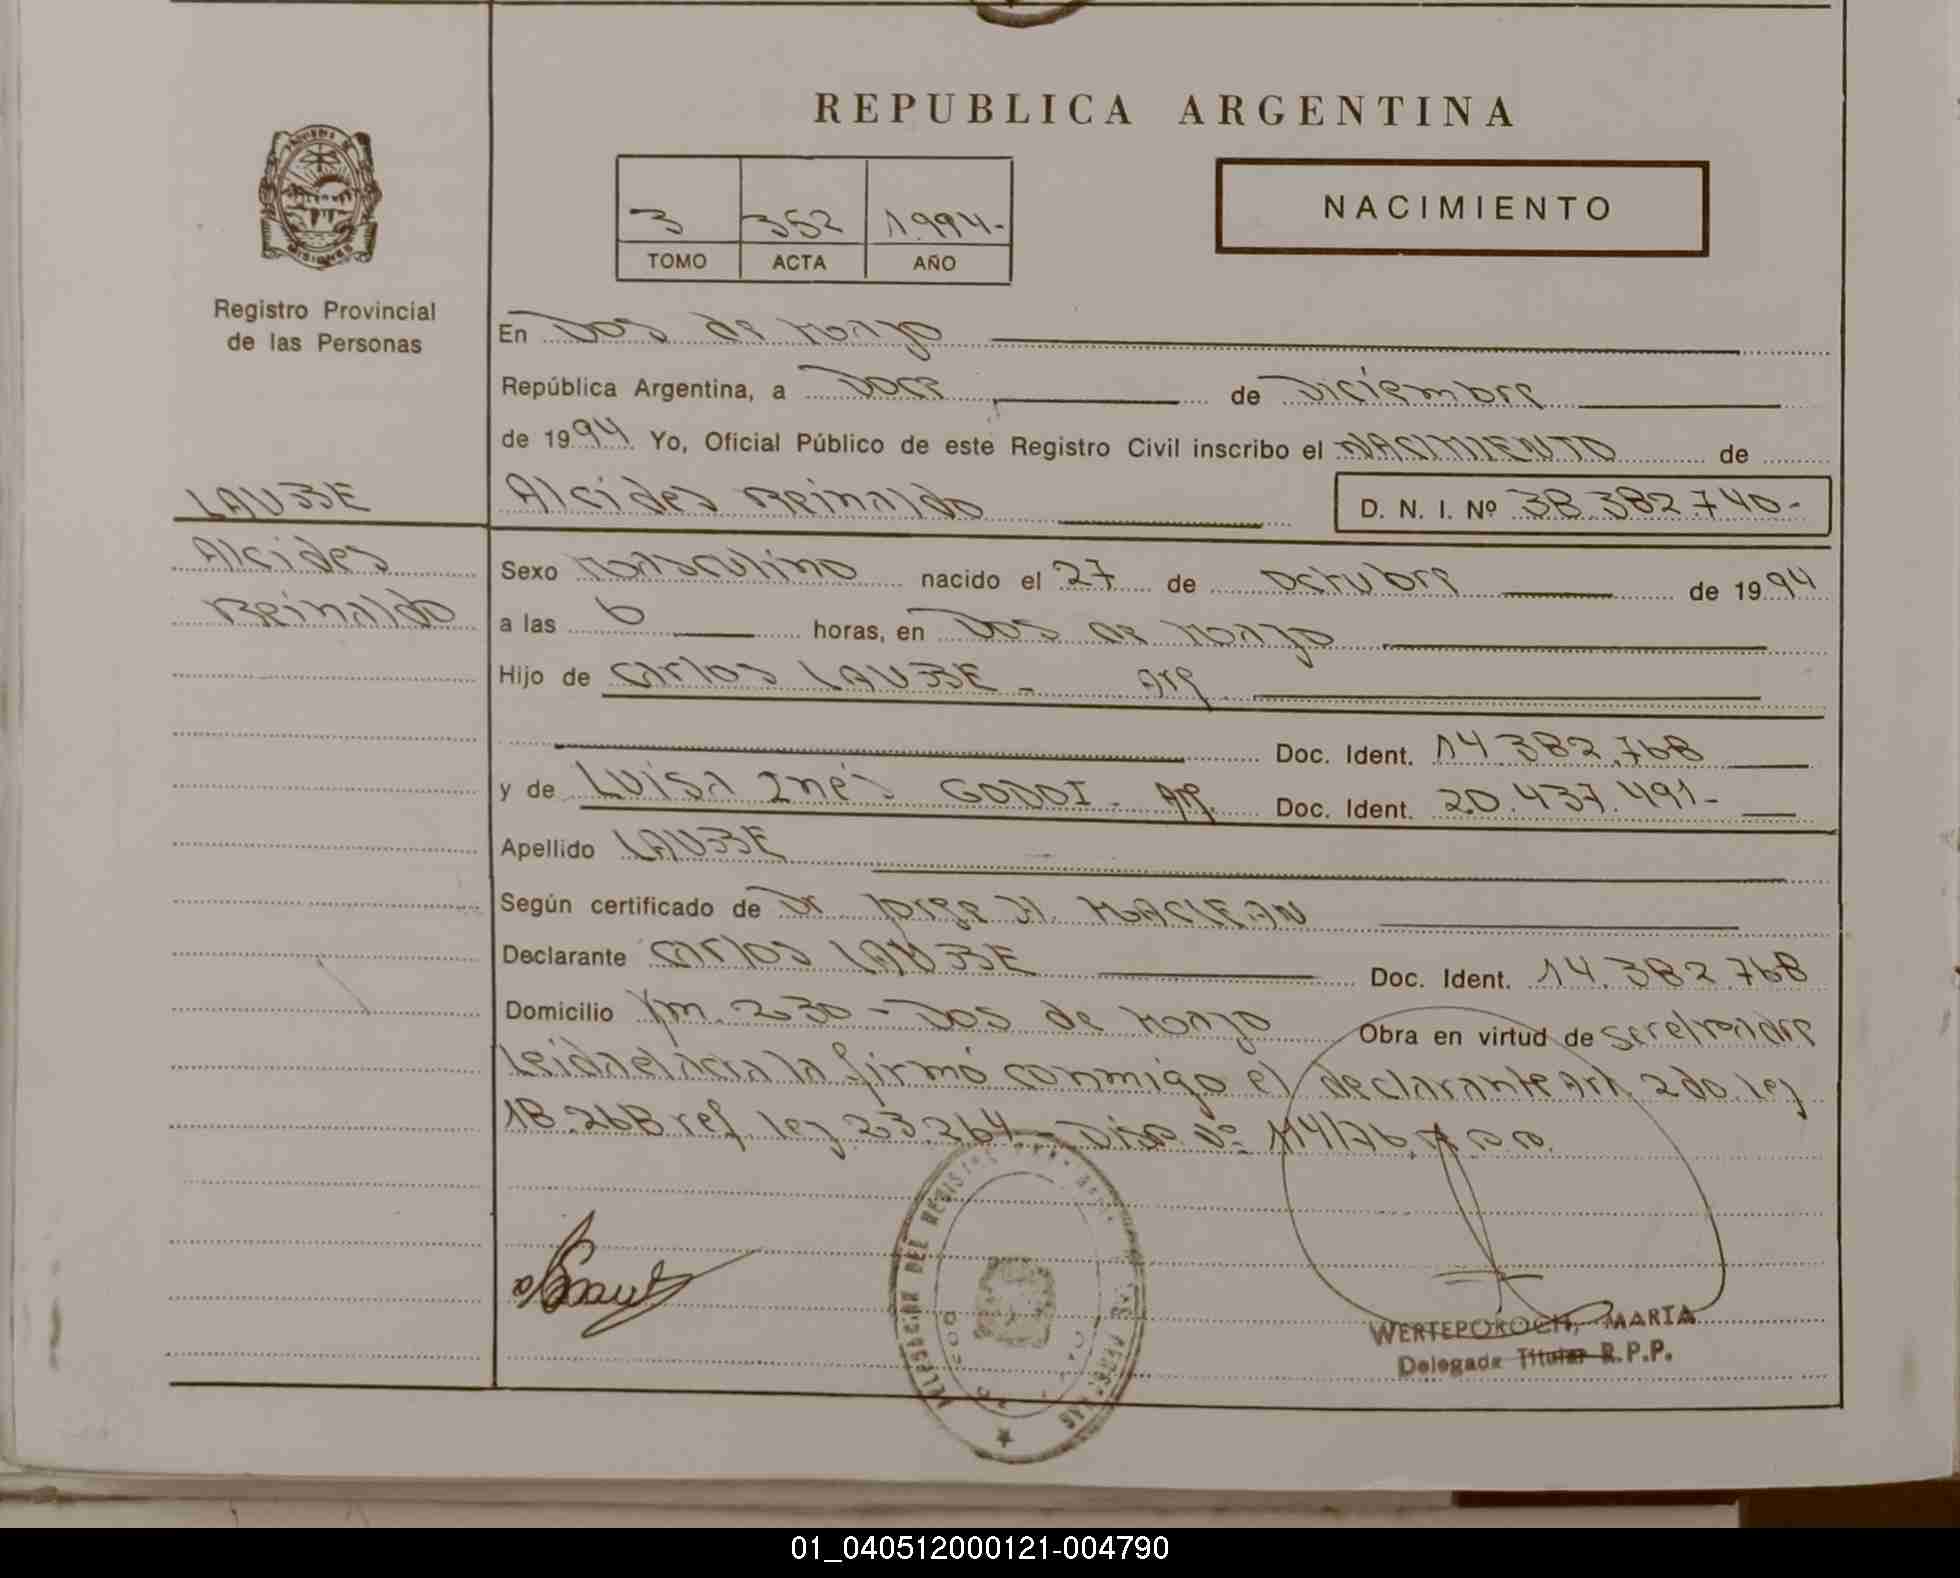 REPUBLICA ARGENTINA
NACIMIENTO
3 352 1994-
TOMO ACTA AÑO
MISIONES
Registro Provincial
de las Personas
En Dos de Mayo
República Argentina, a Doce de Diciembre
de 1994 Yo, Oficial Público de este Registro Civil inscribo el NACIMIENTO de
LAUBE
Alcides Reinaldo D. N. I. Nº 38.382.740-
Alcides
Reinaldo
Sexo Masculino nacido el 27 de octubre de 1994
a las 6 horas, en Dos de Mayo
Hijo de Carlos LAUBE - Arg
Doc. Ident. 14.382.768
y de Luisa Inés GODOI - Arg. Doc. Ident. 20.437.491-
Apellido LAUBE
Según certificado de Dr Jorge H. MACLEAN
Declarante Carlos LAUBE Doc. Ident. 14.382.768
Domicilio Km. 230 - Dos de Mayo Obra en virtud de ser el padre
Leida el acta la firmó conmigo el declarante Art. 2do. Ley
18.248 ref. ley 23.264 - Disp. Nº 114/76 R.P.P.
DEL REGISTRO
WERTEPOROCH, MARIA
Delegada Titular R.P.P.
01_040512000121-004790